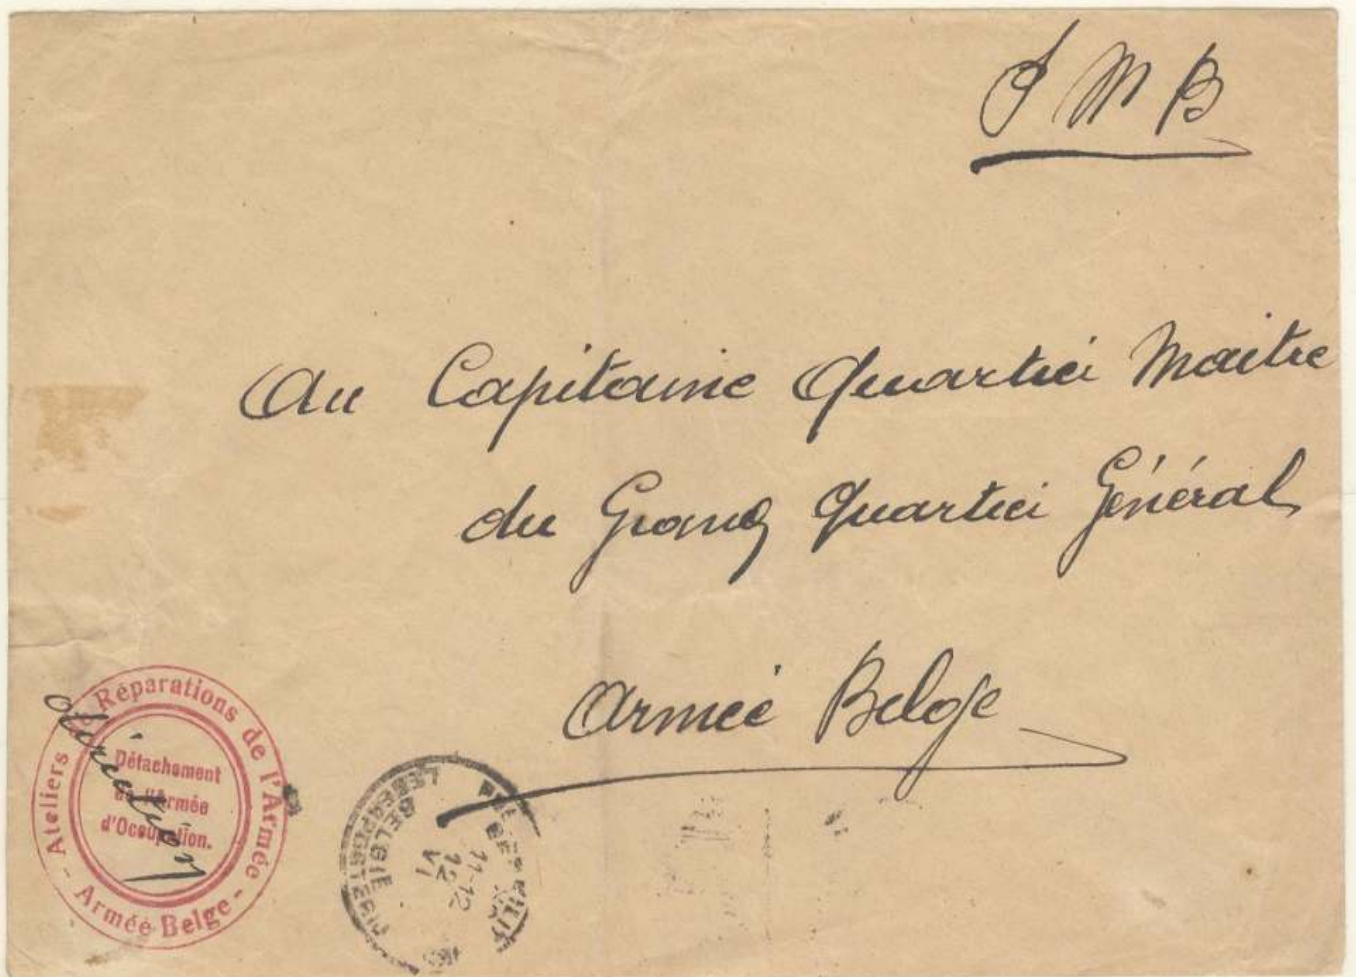 S M B
Au Capitaine Quartier Maitre
du Grand Quartier Général
Armée Belge
Ateliers de Réparations de l'Armée
- Armée Belge -
Détachement
de l'Armée
d'Occupation.
direction
BELGIE
LEGERPOSTERIJ
11-12
12
VI